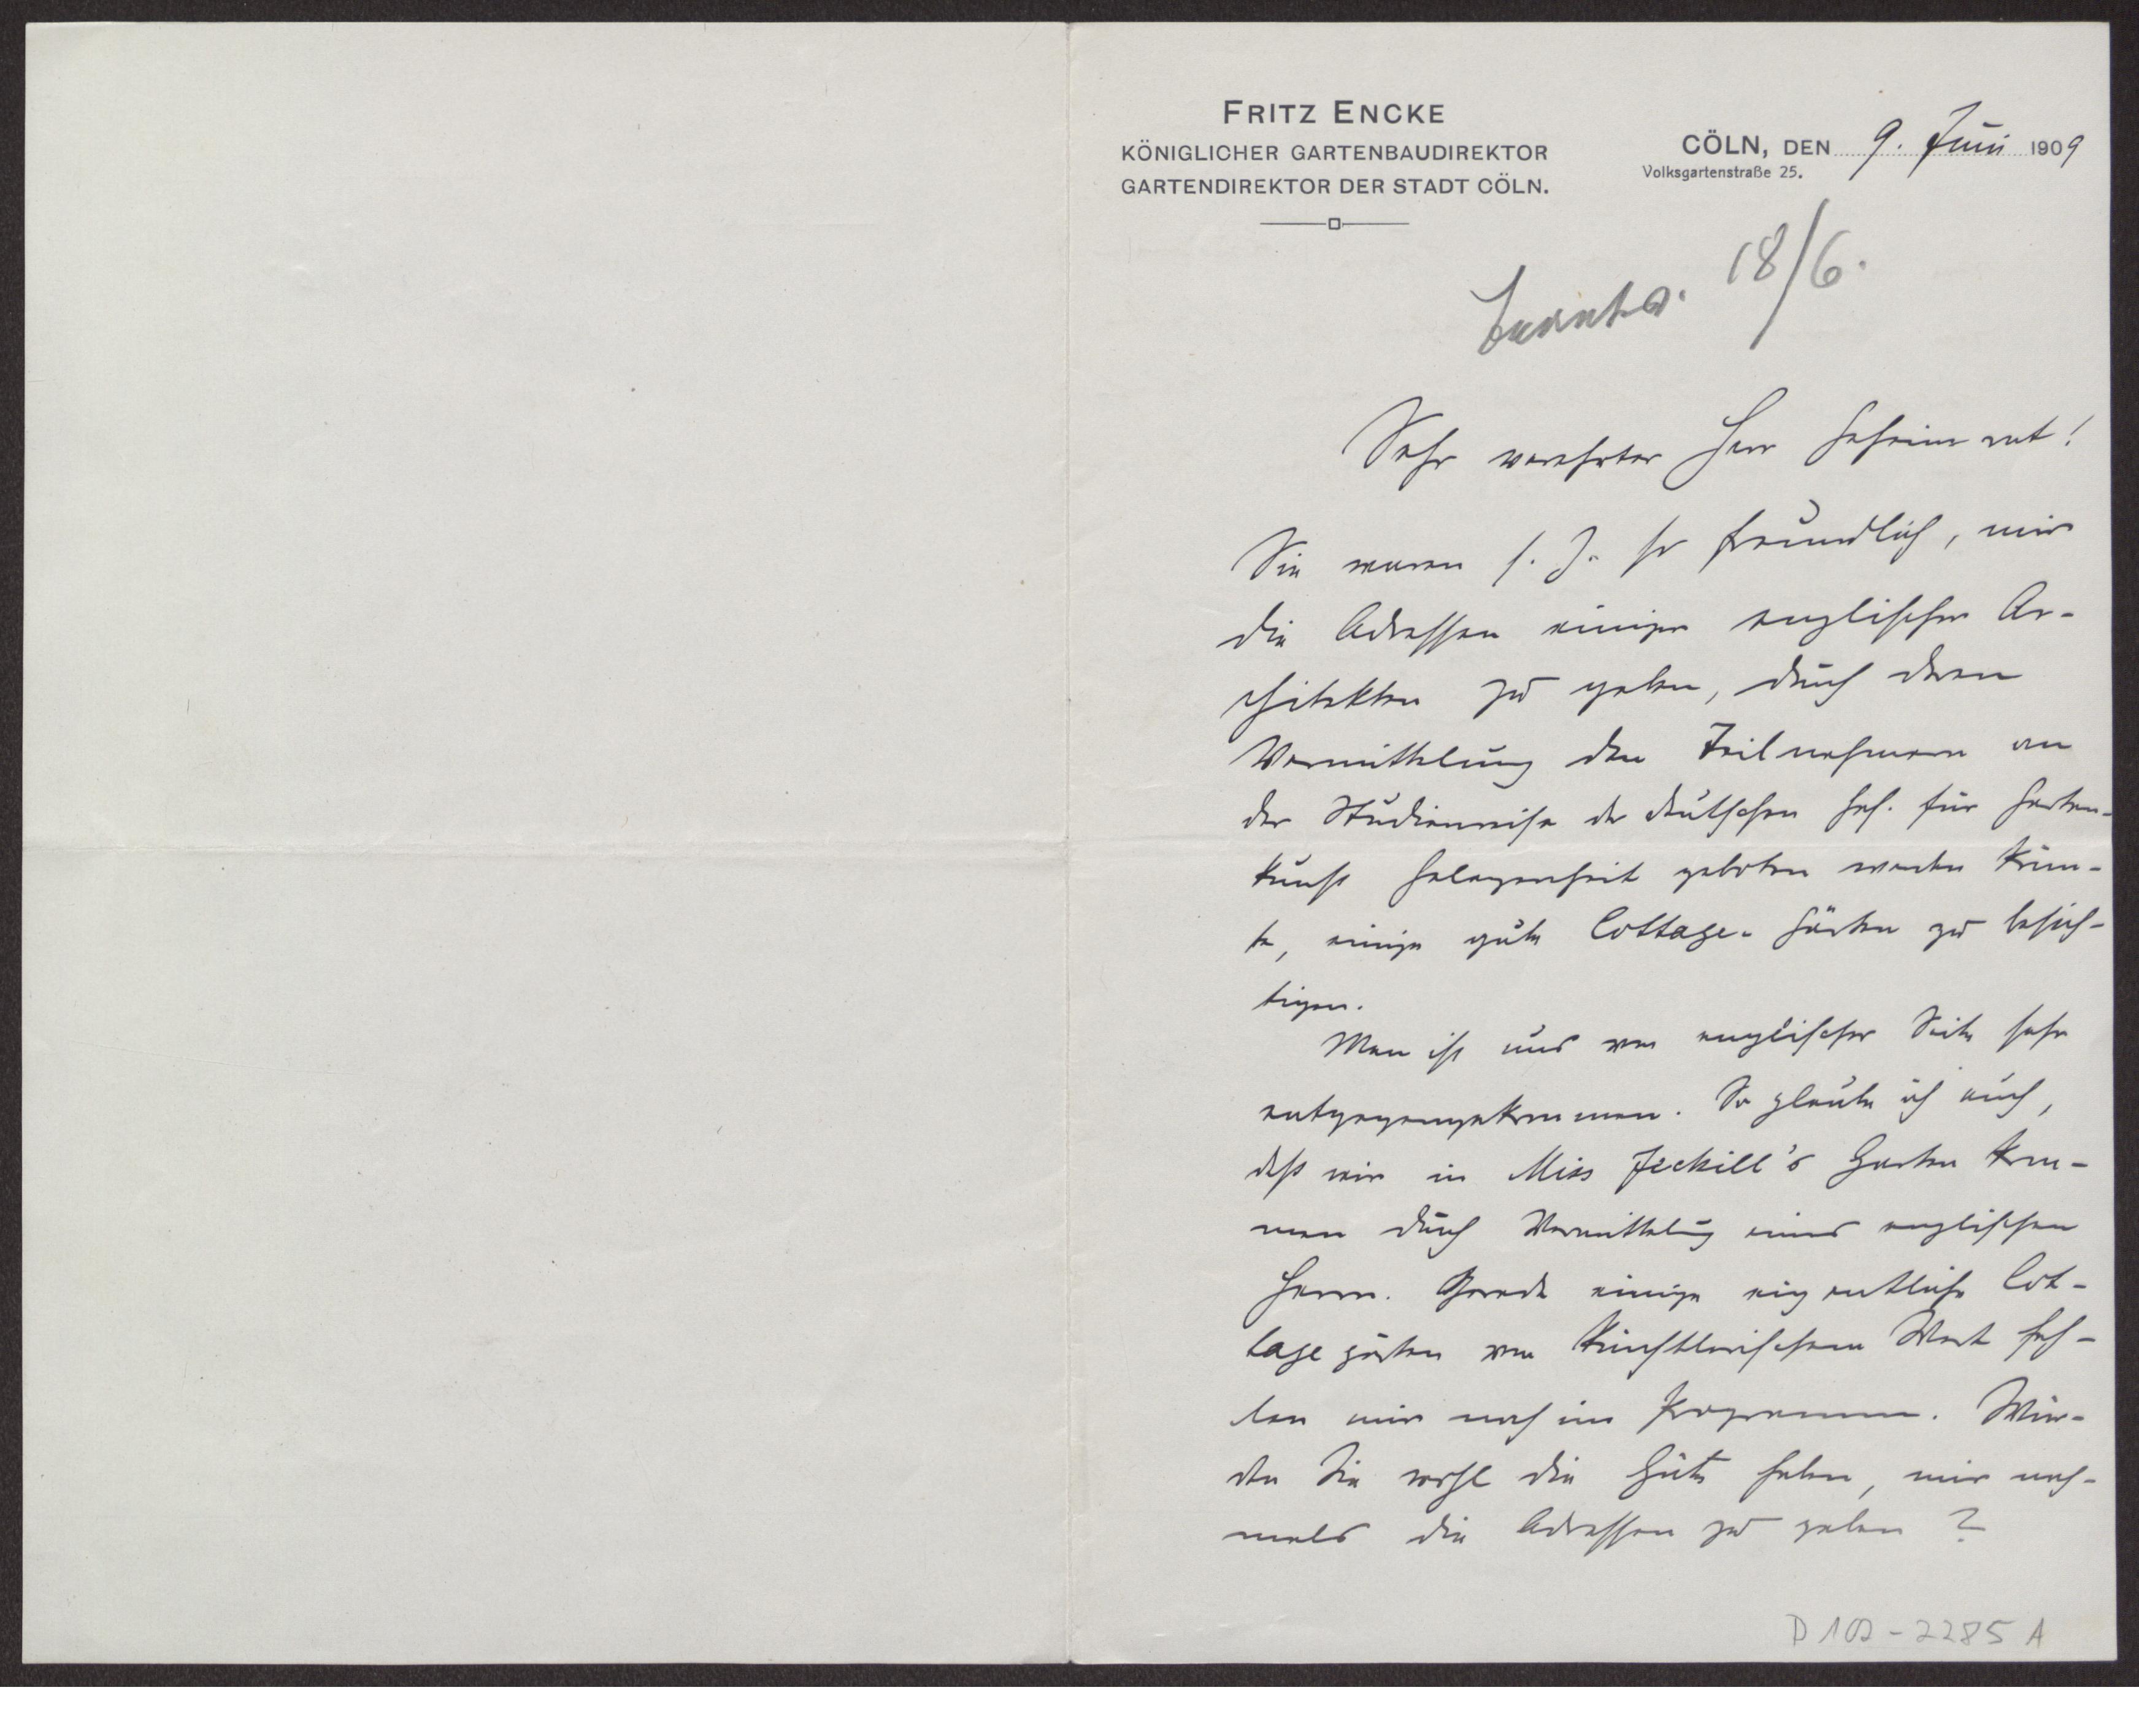 FRITZ ENCKE
KÖNIGLICHER GARTENBAUDIREKTOR
GARTENDIREKTOR DER STADT CÖLN.
CÖLN, DEN 9. Juni 1909
Volksgartenstraße 25.
18/6.
Sehr verehrter Herr Geheimrat!
Sie waren s. Z. so freundlich, mir
die Adressen einiger englischer Ar-
chitekten zu geben, durch deren
Vermittelung den Teilnehmern an
der Studienreise der deutschen Ges. für Garten-
kunst Gelegenheit geboten werden könn-
te, einige gute Cottage-Gärten zu besich-
tigen.
Man ist uns von englischer Seite sehr
entgegengekommen. So glaube ich auch,
daß wir in Miss Jeckill's Garten kom-
men durch Vermittelung eines englischen
Herrn. Gerade einige eigentliche Cot-
tagegärten von künstlerischem Wert feh-
len mir noch im Programm. Wür-
den Sie wohl die Güte haben, mir noch-
mals die Adressen zu geben?
D 102-2285 A